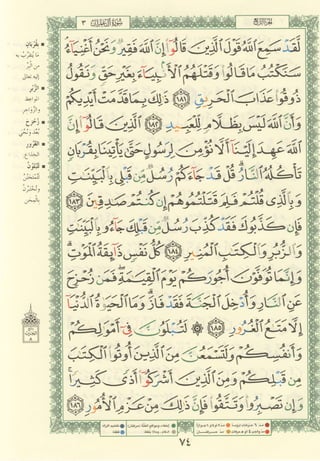 سورة آل عمران ٣
لَّقَدْ سَمِعَ ٱللَّهُ قَوْلَ ٱلَّذِينَ قَالُوٓا۟ إِنَّ ٱللَّهَ فَقِيرٌ وَنَحْنُ أَغْنِيَآءُ
سَنَكْتُبُ مَا قَالُوا۟ وَقَتْلَهُمُ ٱلْأَنۢبِيَآءَ بِغَيْرِ حَقٍّ وَنَقُولُ
ذُوقُوا۟ عَذَابَ ٱلْحَرِيقِ ١٨١ ذَٰلِكَ بِمَا قَدَّمَتْ أَيْدِيكُمْ
وَأَنَّ ٱللَّهَ لَيْسَ بِظَلَّامٍ لِّلْعَبِيدِ ١٨٢ ٱلَّذِينَ قَالُوٓا۟ إِنَّ
ٱللَّهَ عَهِدَ إِلَيْنَآ أَلَّا نُؤْمِنَ لِرَسُولٍ حَتَّىٰ يَأْتِيَنَا بِقُرْبَانٍ
تَأْكُلُهُ ٱلنَّارُ ۗ قُلْ قَدْ جَآءَكُمْ رُسُلٌ مِّن قَبْلِى بِٱلْبَيِّنَـٰتِ
وَبِٱلَّذِى قُلْتُمْ فَلِمَ قَتَلْتُمُوهُمْ إِن كُنتُمْ صَـٰدِقِينَ ١٨٣
فَإِن كَذَّبُوكَ فَقَدْ كُذِّبَ رُسُلٌ مِّن قَبْلِكَ جَآءُو بِٱلْبَيِّنَـٰتِ
وَٱلزُّبُرِ وَٱلْكِتَـٰبِ ٱلْمُنِيرِ ١٨٤ كُلُّ نَفْسٍ ذَآئِقَةُ ٱلْمَوْتِ ۗ
وَإِنَّمَا تُوَفَّوْنَ أُجُورَكُمْ يَوْمَ ٱلْقِيَـٰمَةِ ۖ فَمَن زُحْزِحَ
عَنِ ٱلنَّارِ وَأُدْخِلَ ٱلْجَنَّةَ فَقَدْ فَازَ ۗ وَمَا ٱلْحَيَوٰةُ ٱلدُّنْيَآ
إِلَّا مَتَـٰعُ ٱلْغُرُورِ ١٨٥ ۞ لَتُبْلَوُنَّ فِىٓ أَمْوَٰلِكُمْ
وَأَنفُسِكُمْ وَلَتَسْمَعُنَّ مِنَ ٱلَّذِينَ أُوتُوا۟ ٱلْكِتَـٰبَ
مِن قَبْلِكُمْ وَمِنَ ٱلَّذِينَ أَشْرَكُوٓا۟ أَذًى كَثِيرًا ۚ
وَإِن تَصْبِرُوا۟ وَتَتَّقُوا۟ فَإِنَّ ذَٰلِكَ مِنْ عَزْمِ ٱلْأُمُورِ ١٨٦
٧٤